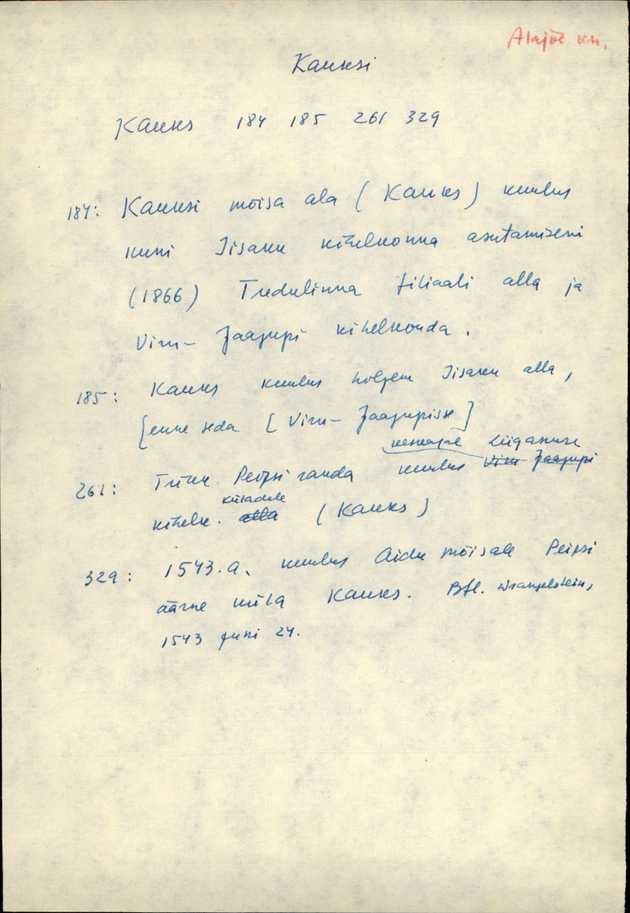 Alajõe kn.
Kauksi
Kauks 184 185 261 329
184: Kauksi mõisa ala (Kauks) kuulus
kuni Iisaku kihelkonna asutamiseni
(1866) Tudulinna filiaali alla ja
Viru-Jaagupi kihelkonda.
185: Kauks kuulus hiljem Iisaku alla,
[enne seda [Viru-Jaagupisse]
keskajal Lüganuse
261: Peipsi randa kuulus Viru Jaagupi
küladele
kihelk. alla (Kauks)
329: 1543.a. kuulus Aidu mõisale Peipsi
äärne küla Kauks. Bfl. Wrangelstein,
1543 juni 24.